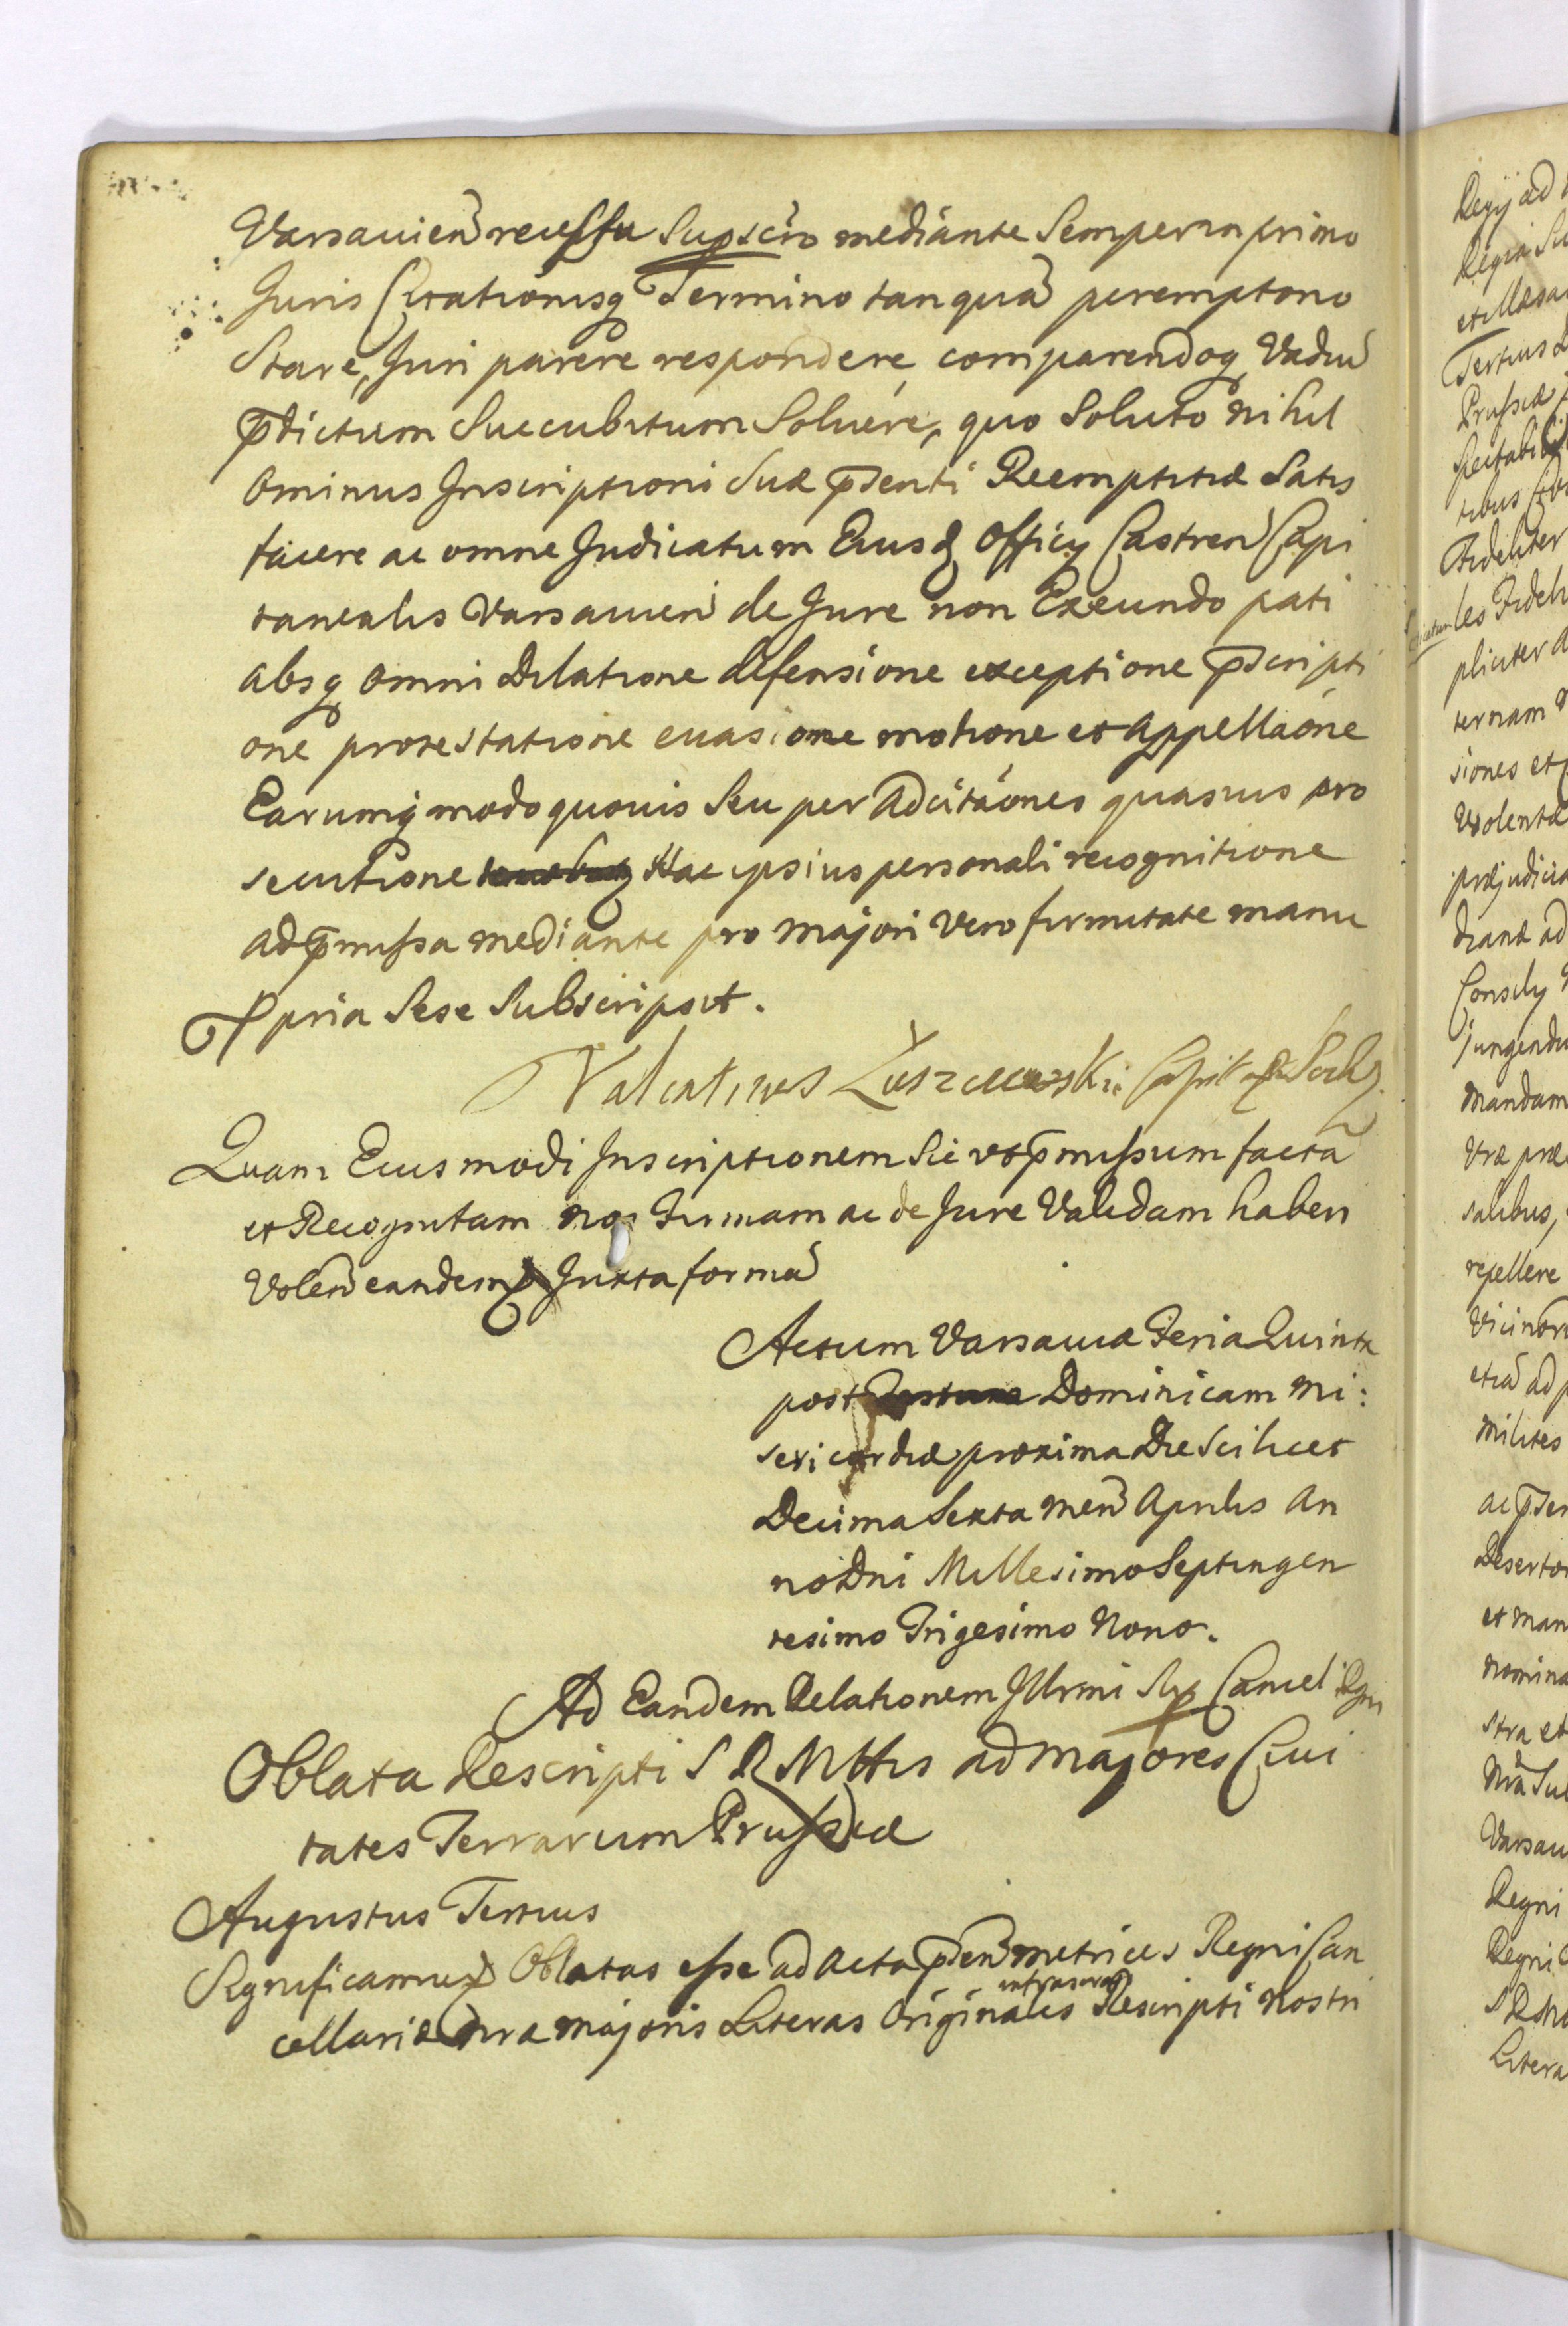 Varsavień recessu Supscro mediante Semper in primo
Juris Citationisq Termino tanquã peremptorio
Stare, Juri parere respondere comparendoq Vadiũ
p̃dictum Succubitum Soluere, quo Soluto nihil
ominus Inscriptioni Suæ p̃senti Reemptitiæ Satis
facere ac omne Judicatum Eiusđ Officÿ Castreñ Capi
tanealis Varsavień de Jure non Exeundo pati
absq omni Dilatione defensione exceptione p̃scripti
one protestatione euasione motione et Appellaóne
Earumq modo quovis Seu per Adcitaónes quasvis pro
secutione Hac ipsius personali recognitione
ad p̃missa mediante pro majori Vero firmitate manu
ppria Sese Subscripsit.
Valentinus Łuszczewski Capit Soch
Quam Eiusmodi Inscriptionem Sic ut p̃missum factã
et Recognitam nos Firmam ac de Jure Validam haberi
Voleñ eandem Juxta formã
Actum Varsaviæ Feria Quinta
post Dominicam Mi:
sericordiæ proxima Die Scilicet
Decima Sexta Meñ Aprilis An
no Dni Millesimo Septingen
tesimo Trigesimo Nono.
Ad Eandem Relationem Illrmi Sup Cancel Rgni
Oblata Rescripti S R Mttis ad majores Civi
tates Terrarum Prussiæ
Augustus Tertius
Significamus Oblatas esse ad Acta p̃señ Metrices Regni Can
infrascrip
cellariæ nræ majoris Literas Originales Rescripti Nostri
Regij ad
Regia
et
Tertius
Prussiæ
tibus
Fideliter
les Fideli
pliciter
ternam
siones et
Violenta
præjudicia
ad
Consily
jungendu
Mandam
Vræ præ
salibus,
repellere
etiã ad
Milites
ac p̃sen
Deserto
et man
nomina
stra et
Nrã Su
Varsav
Regni
Regni
S R M
Litera